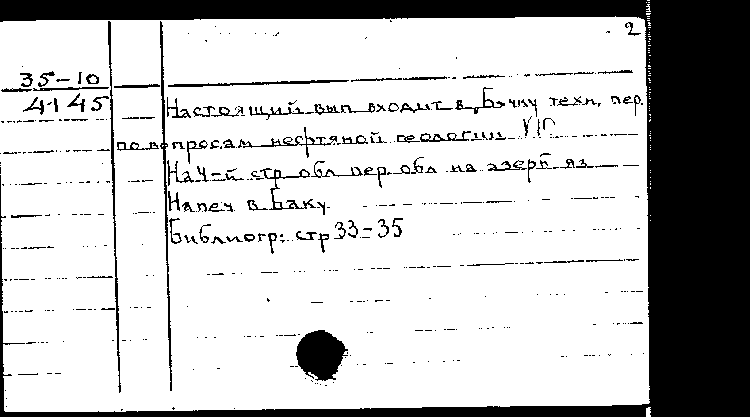 2
35-10
4145
Настоящий вып входит в „Б-чку техн. пер.
по вопросам нефтяной геологии
На 4-й стр обл пер. обл на азерб яз
Напеч в Баку.
Библиогр: стр 33-35